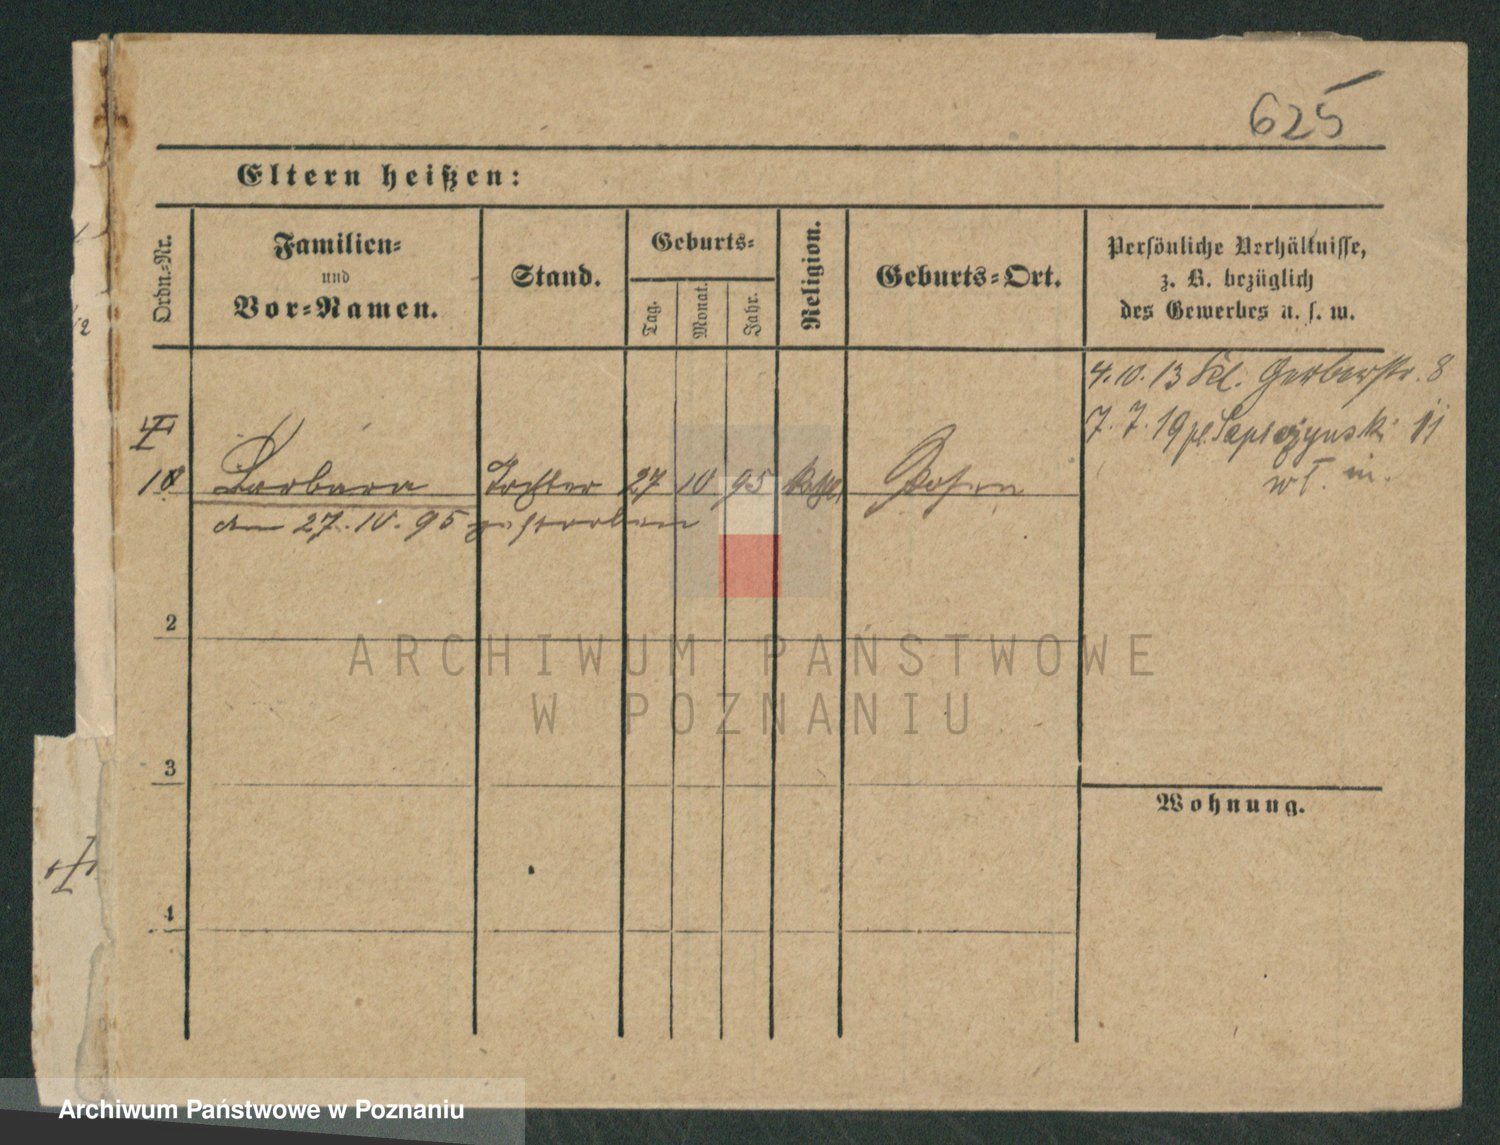 625
Eltern heißen:
Ordn.-Nr.
Familien- und Vor-Namen.
Stand.
Geburts-
Tag.
Monat.
Jahr.
Religion.
Geburts-Ort.
Persönliche Verhältnisse,
z. B. bezüglich
des Gewerbes u. s. w.
4. 10. 13 Kl. Gerberstr. 8
7. 7. 19 pl. Sapieżynski 11
w T. m.
10 Barbara Tochter 27 10 95 kath. Posen
den 27. 10. 95 gestorben
2
ARCHIWUM PAŃSTWOWE
W POZNANIU
3
Wohnung.
4
Archiwum Państwowe w Poznaniu